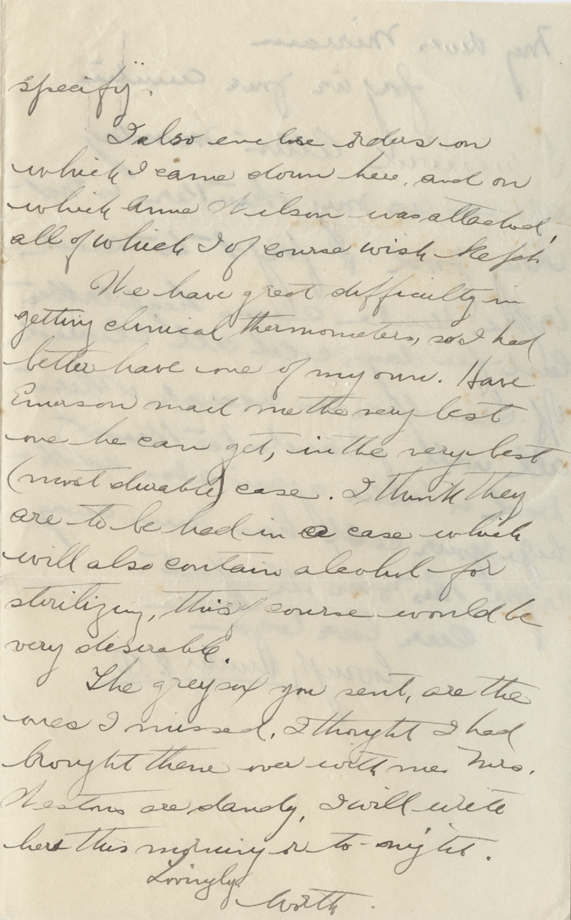 specify".
I also enclose orders on
which I came down here, and on
which Anne Wilson was attached,
all of which I of course wish kept.
We have great difficulty in
getting clinical thermometers, so I had
better have one of my own. Have
Emerson mail me the very best
one he can get, in the very best
(most durable) case. I think they
are to be had in a case which
will also contain alcohol for
sterilizing, this of course would be
very desirable.
The grey sox you sent, are the
ones I missed, I thought I had
brought them over with me. Mrs.
Westons are dandy, I will write
her this morning or to-night.
Lovingly
Worth.